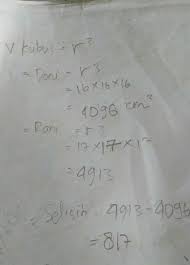 V kubus = r³
= Doni = r³
= 16 × 16 × 16
= 4096 cm³
= Roni = r³
= 17 × 17 × 17
= 4913
Selisih = 4913 - 4096
= 817